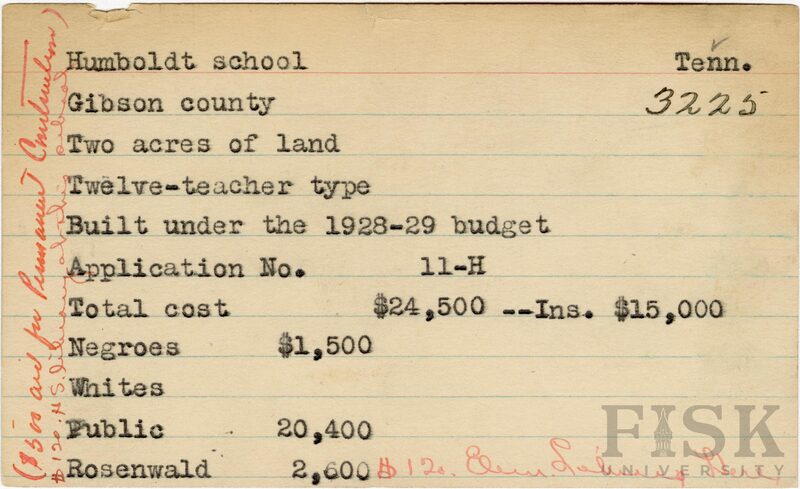 Humboldt school Tenn.
Gibson county 3225
Two acres of land
Twelve-teacher type
Built under the 1928-29 budget
Application No. 11-H
Total cost $24,500 --Ins. $15,000
Negroes $1,500
Whites
Public 20,400
Rosenwald 2,600 $120. Elem. Library
($500 aid for Permanent Construction)
$120. H.S. library
FISK
UNIVERSITY